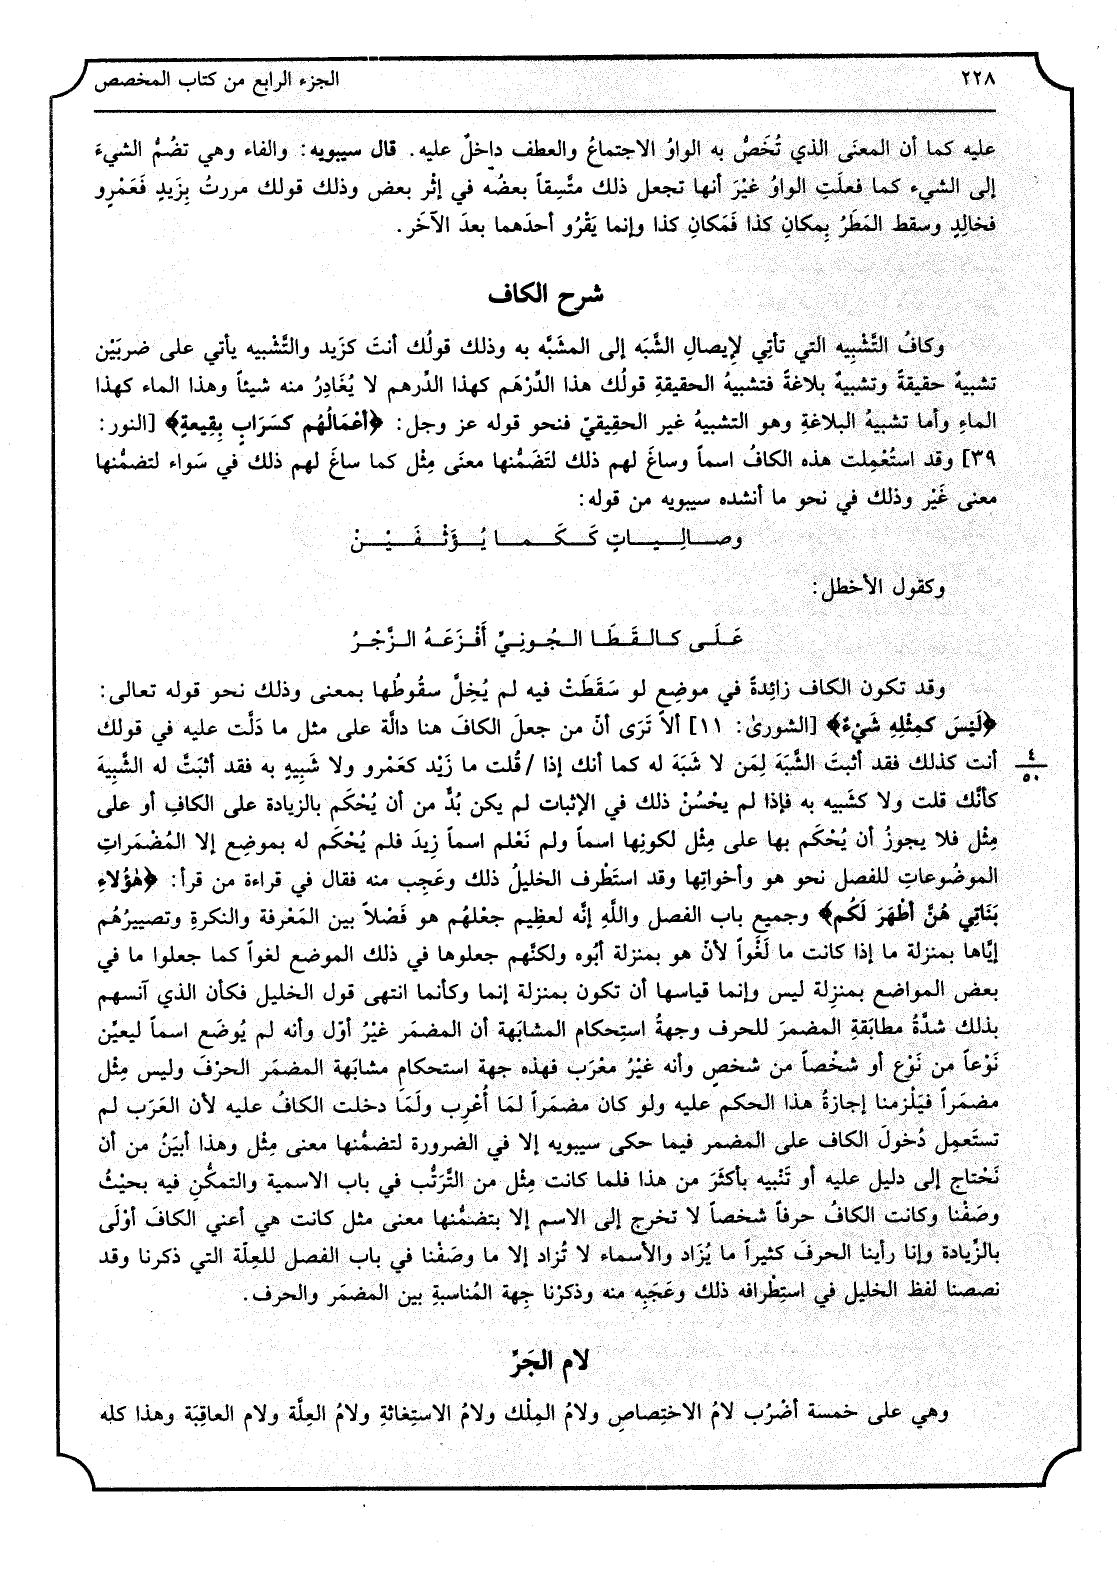 ٢٢٨ الجزء الرابع من كتاب المخصص
عليه كما أن المعنَى الذي تُخَصُّ به الواوُ الاجتماعُ والعطف داخلٌ عليه. قال سيبويه: والفاء وهي تضُمُّ الشيءَ
إلى الشيء كما فعلَتِ الواوُ غيْرَ أنها تجعل ذلك متَّسِقاً بعضُه في إثْر بعض وذلك قولك مررتُ بِزَيدٍ فَعَمْرٍو
فخالِدٍ وسقط المَطَرُ بِمكانِ كذا فَمَكانِ كذا وإنما يَقْرُو أحدَهما بعدَ الآخَر.
شرح الكاف
وكافُ التَّشْبِيه التي تأتِي لِإيصالِ الشَّبَه إلى المشَبَّه به وذلك قولُك أنتَ كزَيد والتَّشْبيه يأتي على ضربَيْن
تشبيهٌ حقيقةً وتشبيهٌ بلاغةً فتشبيهُ الحقيقةِ قولُك هذا الدِّرْهَم كهذا الدِّرهم لا يُغَادِرُ منه شيئاً وهذا الماء كهذا
الماءِ وأما تشبيهُ البلاغةِ وهو التشبيهُ غير الحقِيقيّ فنحو قوله عز وجل: ﴿أعْمَالُهُم كسَرَابٍ بِقِيعةٍ﴾ [النور:
٣٩] وقد استُعْمِلت هذه الكافُ اسماً وساغَ لهم ذلك لتَضَمُّنها معنَى مِثْل كما ساغَ لهم ذلك في سَواء لتضمُّنها
معنى غَيْر وذلك في نحو ما أنشده سيبويه من قوله:
وصـالِـيـاتٍ كَـكَـمـا يُـؤَثْـفَـيْـنْ
وكقول الأخطل:
عَـلَـى كـالـقَـطَـا الـجُـونِـيِّ أَفْـزَعَـهُ الـزَّجْـرُ
وقد تكون الكاف زائِدةً في موضِع لو سَقَطَتْ فيه لم يُخِلَّ سقُوطُها بمعنى وذلك نحو قوله تعالى:
﴿لَيْسَ كمِثْلِهِ شَيْءٌ﴾ [الشورىٰ: ١١] ألاَ تَرَى أنّ من جعلَ الكافَ هنا دالَّة على مثل ما دَلَّت عليه في قولك
أنت كذلك فقد أثبتَ الشَّبَهَ لِمَن لا شَبَهَ له كما أنك إذا / قُلت ما زَيْد كعَمْرو ولا شَبِيهٍ به فقد أثبَتَّ له الشَّبِيهَ
٤
٥٠
كأنَّك قلت ولا كشَبيه به فإذا لم يحْسُنْ ذلك في الإثبات لم يكن بُدٌّ من أن يُحْكَم بالزيادة على الكافِ أو على
مِثْل فلا يجوزُ أن يُحْكَم بها على مِثْل لكونِها اسماً ولم نَعْلم اسماً زِيدَ فلم يُحْكَم له بموضِع إلا المُضْمَراتِ
الموضُوعاتِ للفصل نحو هو وأخواتِها وقد استَطْرف الخليلُ ذلك وعَجِب منه فقال في قراءة من قرأ: ﴿هٰؤُلاءِ
بَنَاتِي هُنَّ أطْهَرَ لَكُم﴾ وجميع باب الفصل واللَّهِ إنَّه لعظِيم جعْلهُم هو فَصْلاً بين المَعْرفة والنكرةِ وتصييرُهُم
إيَّاها بمنزلة ما إذا كانت ما لَغْواً لأنّ هو بمنزلة أبُوه ولكنَّهم جعلوها في ذلك الموضع لغواً كما جعلوا ما في
بعض المواضَع بمنزِلة ليس وإنما قياسها أن تكون بمنزلة إنما وكأنما انتهى قول الخليل فكأن الذي آنسهم
بذلك شدَّةُ مطابَقةِ المضمرَ للحرف وجهةُ استِحكام المشابَهة أن المضمَر غيْرُ أوّل وأنه لم يُوضَع اسماً ليعيِّن
نَوْعاً من نَوْع أو شَخْصاً من شخصٍ وأنه غيْرُ معْرَب فهذه جهة استحكام مشابَهة المضمَر الحرْفَ وليس مِثْل
مضمَراً فيَلْزمنا إجازةُ هذا الحكم عليه ولو كان مضمَراً لمَا أُعْرِب ولَمَا دخلت الكافُ عليه لأن العَرَب لم
تستَعمِل دُخولَ الكاف على المضمر فيما حكى سيبويه إلا في الضرورة لتضمُّنها معنى مِثْل وهذا أبيَنُ من أن
نَحْتاج إلى دليل عليه أو تَنْبيه بأكثَرَ من هذا فلما كانت مِثْل من التَّرَتُّب في باب الاسمية والتمكُّنِ فيه بحيْثُ
وصَفْنا وكانت الكافُ حرفاً شخصاً لا تخرج إلى الاسم إلا بتضمُّنها معنى مثل كانت هي أعني الكافَ أوْلَى
بالزِّيادة وإنا رأينا الحرفَ كثيراً ما يُزَاد والأسماء لا تُزاد إلا ما وصَفْنا في باب الفصل للعِلّة التي ذكرنا وقد
نصصنا لفظ الخليل في استِطْرافه ذلك وعَجَبِه منه وذكرْنا جِهة المُناسبةِ بين المضمَر والحرف.
لام الجَرِّ
وهي على خمسة أضْرُب لامُ الاختِصاصِ ولامُ المِلْك ولامُ الاستِغاثةِ ولامُ العِلَّة ولام العاقِبَة وهذا كله